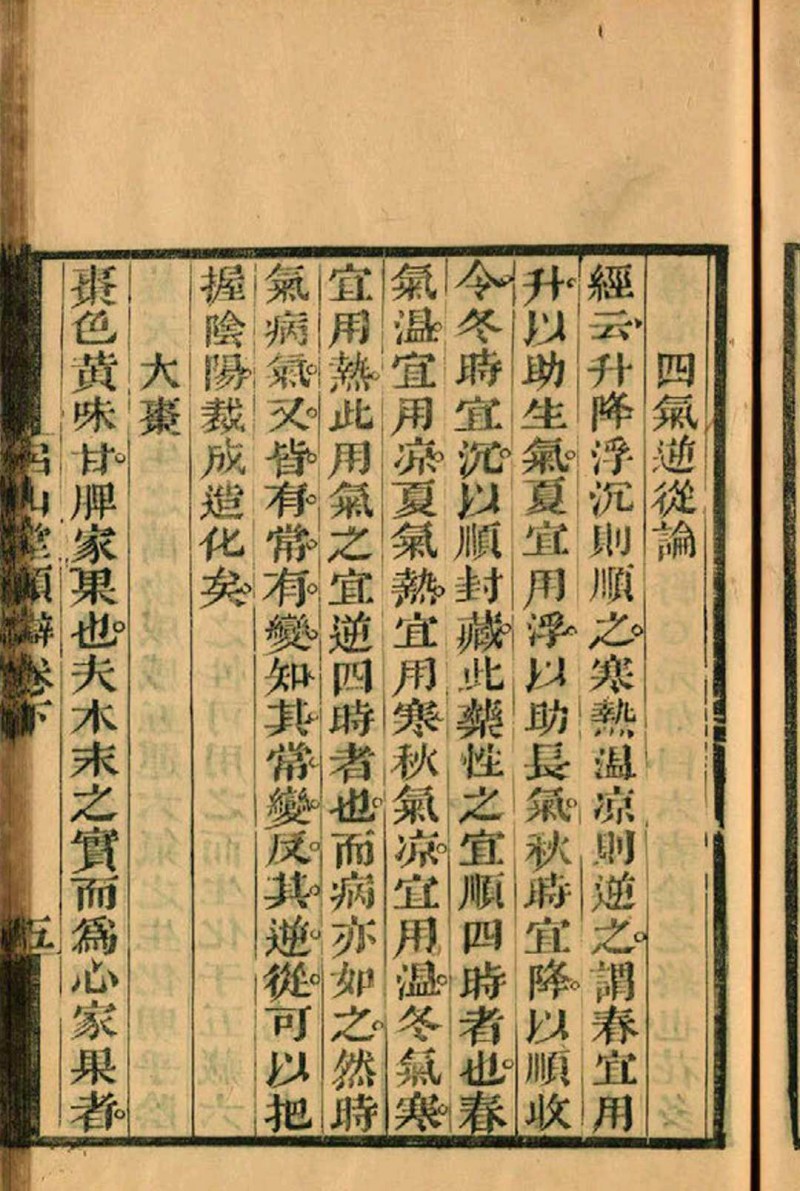 四氣逆從論
經云升降浮沉則順之寒熱温凉則逆之謂春宜用
升以助生氣夏宜用浮以助長氣秋時宜降以順收
令冬時宜沉以順封藏此藥性之宜順四時者也春
氣温宜用凉夏氣熱宜用寒秋氣凉宜用温冬氣寒
宜用熱此用氣之宜逆四時者也而病亦如之然時
氣病氣又皆有常有變知其常變反其逆從可以把
握陰陽裁成造化矣
大棗
棗色黄味甘脾家果也夫木末之實而爲心家果者
山堂類辯卷下
五